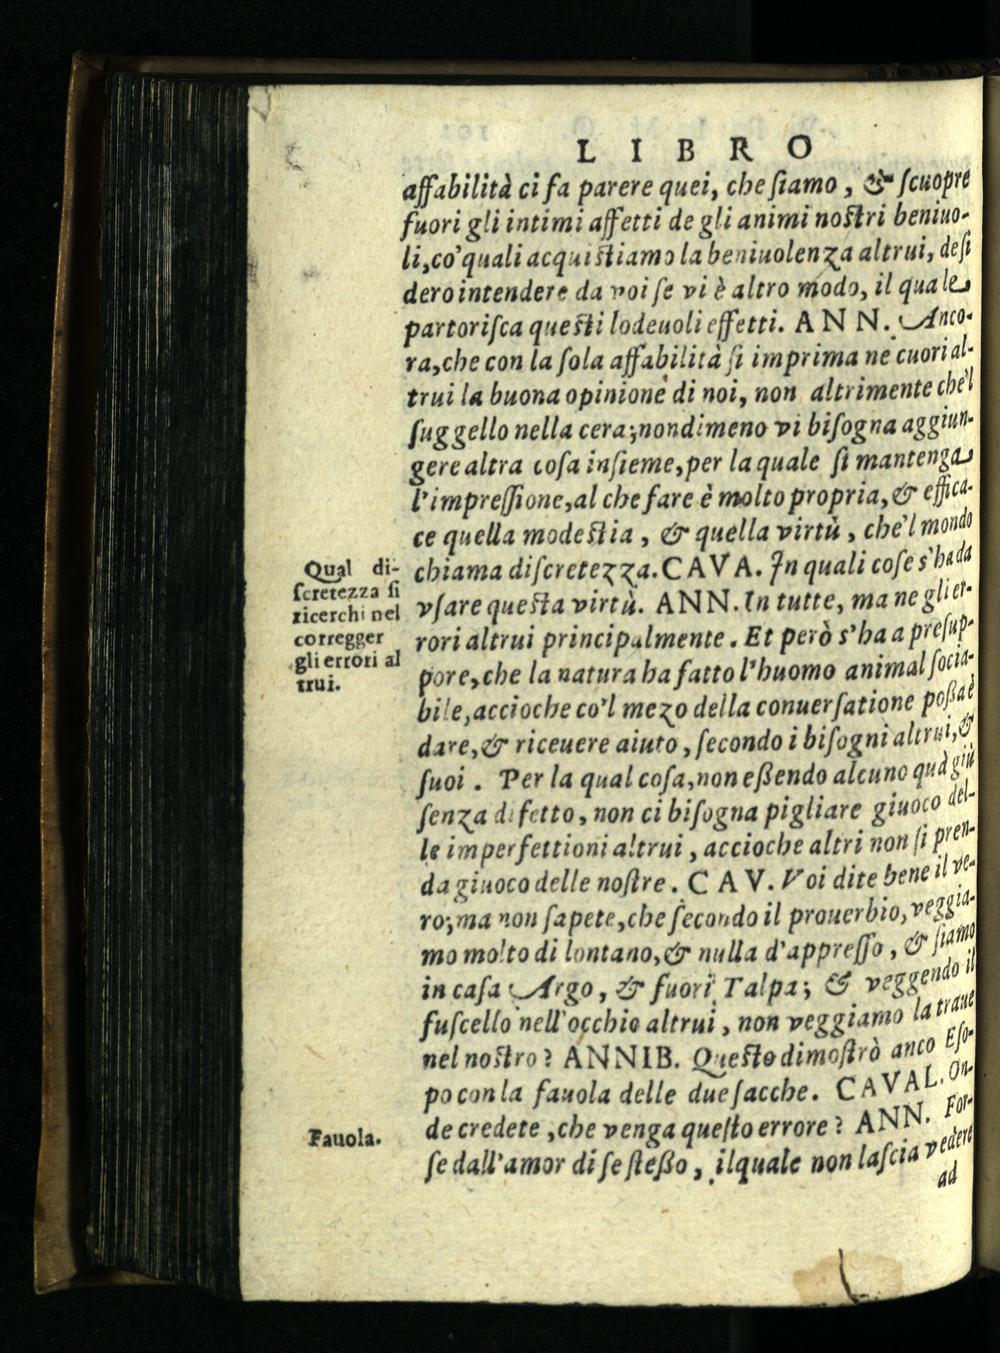 LIBRO
affabilità ci fa parere quei, che ſiamo, & ſcuopre
fuori gli intimi affetti de gli animi noſtri beniuo-
li, co' quali acquiſtiamo la beniuolenza altrui, deſi
dero intendere da voi ſe vi è altro modo, il quale
partoriſca queſti lodeuoli effetti. ANN. Anco-
ra, che con la ſola affabilità ſi imprima ne cuori al-
trui la buona opinione di noi, non altrimente che'l
ſuggello nella cera; nondimeno vi biſogna aggiun-
gere altra coſa inſieme, per la quale ſi mantenga
l'impreſſione, al che fare è molto propria, & effica-
ce quella modeſtia, & quella virtù, che'l mondo
chiama diſcretezza. CAVA. In quali coſe s'ha da
Qual di-
ſcretezza ſi
ricerchi nel
corregger
gli errori al
trui.
vſare queſta virtù. ANN. In tutte, ma ne gli er-
rori altrui principalmente. Et però s'ha a preſup-
pore, che la natura ha fatto l'huomo animal ſocia-
bile, accioche co'l mezo della conuerſatione poßa e
dare, & riceuere aiuto, ſecondo i biſogni altrui, &
ſuoi. Per la qual coſa, non eßendo alcuno quà giù
ſenza difetto, non ci biſogna pigliare giuoco del-
le imperfettioni altrui, accioche altri non ſi pren-
da giuoco delle noſtre. CAV. Voi dite bene il ve-
ro; ma non ſapete, che ſecondo il prouerbio, veggia-
mo molto di lontano, & nulla d'appreſſo, & ſiamo
in caſa Argo, & fuori Talpa; & veggendo il
fuſcello nell'occhio altrui, non veggiamo la traue
nel noſtro? ANNIB. Queſto dimoſtrò anco Eſo-
po con la fauola delle due ſacche. CAVAL. On-
Fauola.
de credete, che venga queſto errore? ANN. For-
ſe dall'amor di ſe ſteßo, ilquale non laſcia vedere
ad